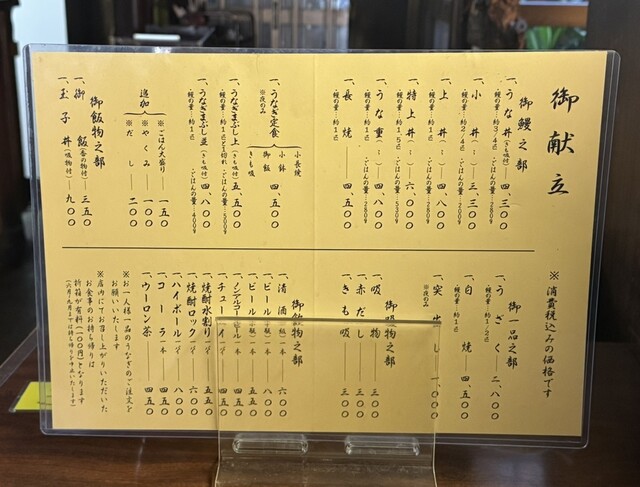 御献立
御鰻之部
一、うな丼(きも吸付)―四、三〇〇
(鰻の量:約3/4匹 ・ごはんの量:280g)
一、小丼(〃)―三、三〇〇
(鰻の量:約2/4匹 ・ごはんの量:200g)
一、上丼(〃)―四、八〇〇
(鰻の量:約1匹 ・ごはんの量:280g)
一、特上丼(〃)―六、〇〇〇
(鰻の量:約1.5匹 ・ごはんの量:530g)
一、うな重(〃)―四、八〇〇
(鰻の量:約1匹 ・ごはんの量:280g)
一、長焼―四、五〇〇
(鰻の量:約1匹)
一、うなぎ定食
※夜のみ
小長焼
小鉢
御飯
きも吸
四、五〇〇
一、うなぎまぶし上(きも吸付)五、五〇〇
一、うなぎまぶし並(きも吸付)四、八〇〇
(鰻の量:約1匹 ・ごはんの量:400g)
追加
※ごはん大盛り―一五〇
※やくみ―一〇〇
※だし―二〇〇
御飯物之部
一、御飯(香の物付)―三五〇
一、玉子丼(吸物付)―九〇〇
※消費税込みの価格です
御一品之部
一、うざく―二、八〇〇
(鰻の量:約1/2匹)
一、白焼―四、五〇〇
(鰻の量:約1匹)
一、突出し―一、〇〇〇
※夜のみ
御吸物之部
一、吸物―三〇〇
一、赤だし―三五〇
一、きも吸―三〇〇
御飲物之部
一、清酒―六〇〇
一、ビール―八〇〇
一、ビール―五五〇
一、ノンアルコールビール一本―四五〇
一、チューハイ―四五〇
一、焼酎水割り―五五〇
一、焼酎ロック―六〇〇
一、ハイボール―八〇〇
一、コーラ一本―四五〇
一、ウーロン茶―四五〇
※お一人様一品のうなぎのご注文を
お願いいたします
※店内にてお召し上がりいただいた
お食事のお持ち帰りは
折箱が有料(一〇〇円)となります
(六月〜九月までは持ち帰りを中止いたします)